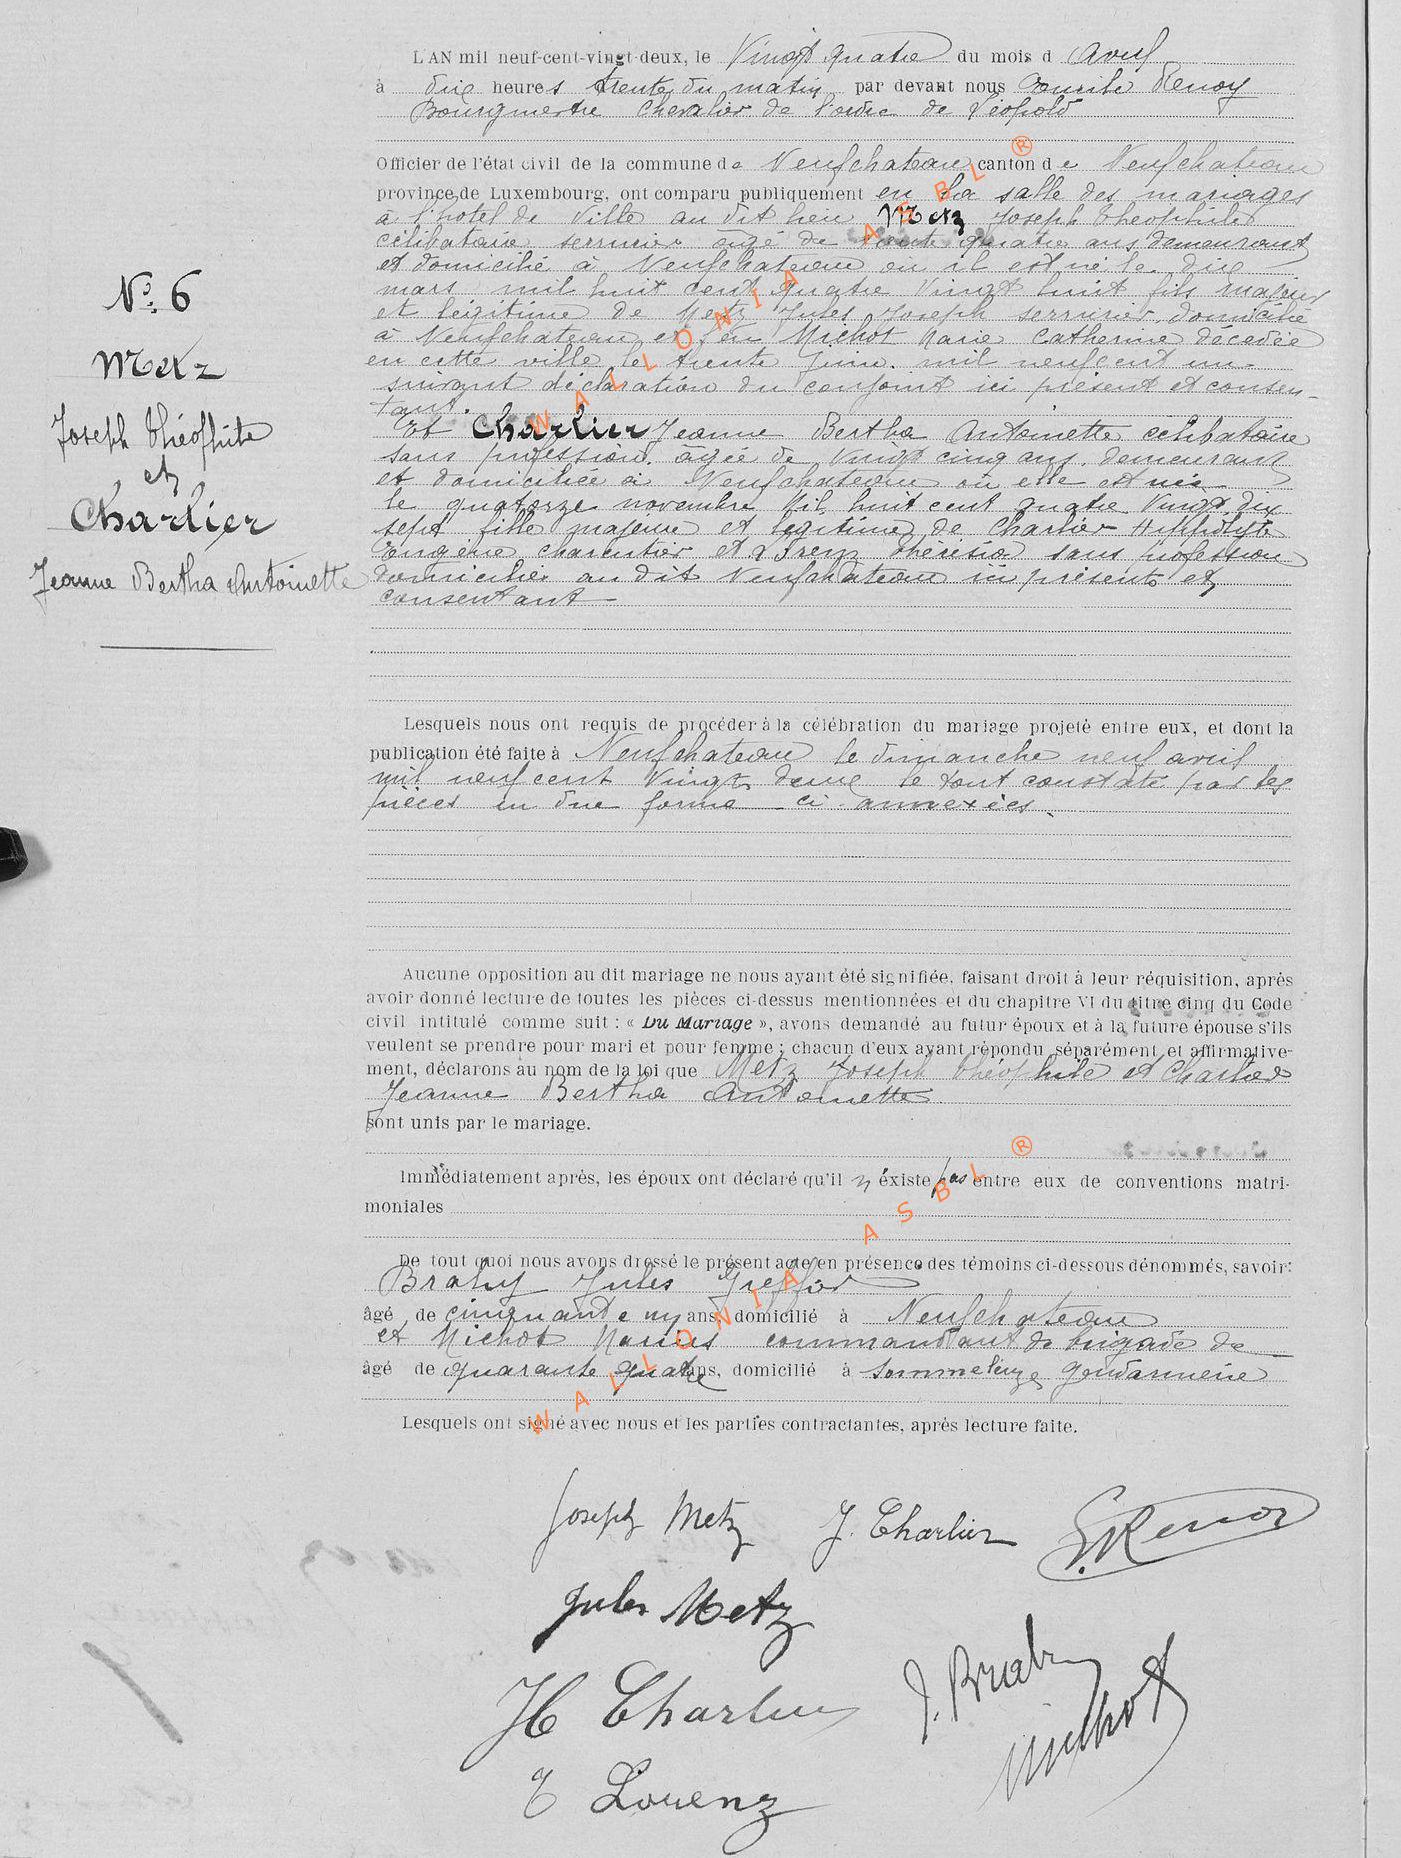 L'AN mil neuf-cent-vingt-deux, le Vingt quatre du mois d avril
à dix heures trente du matin par devant nous Emile Renoy
Bourgmestre Chevalier de l'ordre de Léopold
Officier de l'état civil de la commune de Neufchateau canton de Neufchateau
province de Luxembourg, ont comparu publiquement en la salle des mariages
à l'hotel de Ville au dit lieu Metz Joseph Théophile
célibataire serrurier âgé de trente quatre ans demeurant
et domicilié à Neufchateau où il est né le dix
mars mil huit cent quatre Vingt huit fils majeur
et légitime de Metz Jules Joseph serrurier domicilié
à Neufchateau et feu Michot Marie Catherine décédée
en cette ville le trente juin mil neuf cent un
suivant déclaration du conjoint ici présent et consen-
tant.
Et Charlier Jeanne Bertha Antoinette célibataire
sans profession âgée de Vingt cinq ans demeurant
et domiciliée à Neufchateau où elle est née
le quatorze novembre Mil huit cent quatre Vingt dix
sept fille majeure et légitime de Charlier Hippolyte
Eugène charpentier et Thérésia sans profession
domiciliés au dit Neufchateau ici présents et
consentant
N° 6
Metz
Joseph Théophile
et
Charlier
Jeanne Bertha Antoinette
Lesquels nous ont requis de procéder à la célébration du mariage projeté entre eux, et dont la
publication été faite à Neufchateau le dimanche neuf avril
mil neuf cent Vingt deux le tout constaté par les
pièces en due forme ci-annexées.
Aucune opposition au dit mariage ne nous ayant été signifiée, faisant droit à leur réquisition, après
avoir donné lecture de toutes les pièces ci-dessus mentionnées et du chapitre VI du titre cinq du Code
civil intitulé comme suit : « Du Mariage », avons demandé au futur époux et à la future épouse s'ils
veulent se prendre pour mari et pour femme ; chacun d'eux ayant répondu séparément et affirmative-
ment, déclarons au nom de la loi que Metz Joseph Théophile et Charlier
Jeanne Bertha Antoinette
sont unis par le mariage.
Immédiatement après, les époux ont déclaré qu'il n'existe pas entre eux de conventions matri-
moniales
De tout quoi nous avons dressé le présent acte en présence des témoins ci-dessous dénommés, savoir:
Brahy Jules Greffier
âgé de cinquante un ans domicilié à Neufchateau
et Michot commandant de brigade de
âgé de quarante quatre ans, domicilié à Sommeleuze gendarmerie
Lesquels ont signé avec nous et les parties contractantes, après lecture faite.
Joseph Metz J. Charlier E. Renoy
Jules Metz
J. Brahy
H Charlier
Michot
T Lorenz
WALLONIA ASBL ®
WALLONIA ASBL ®